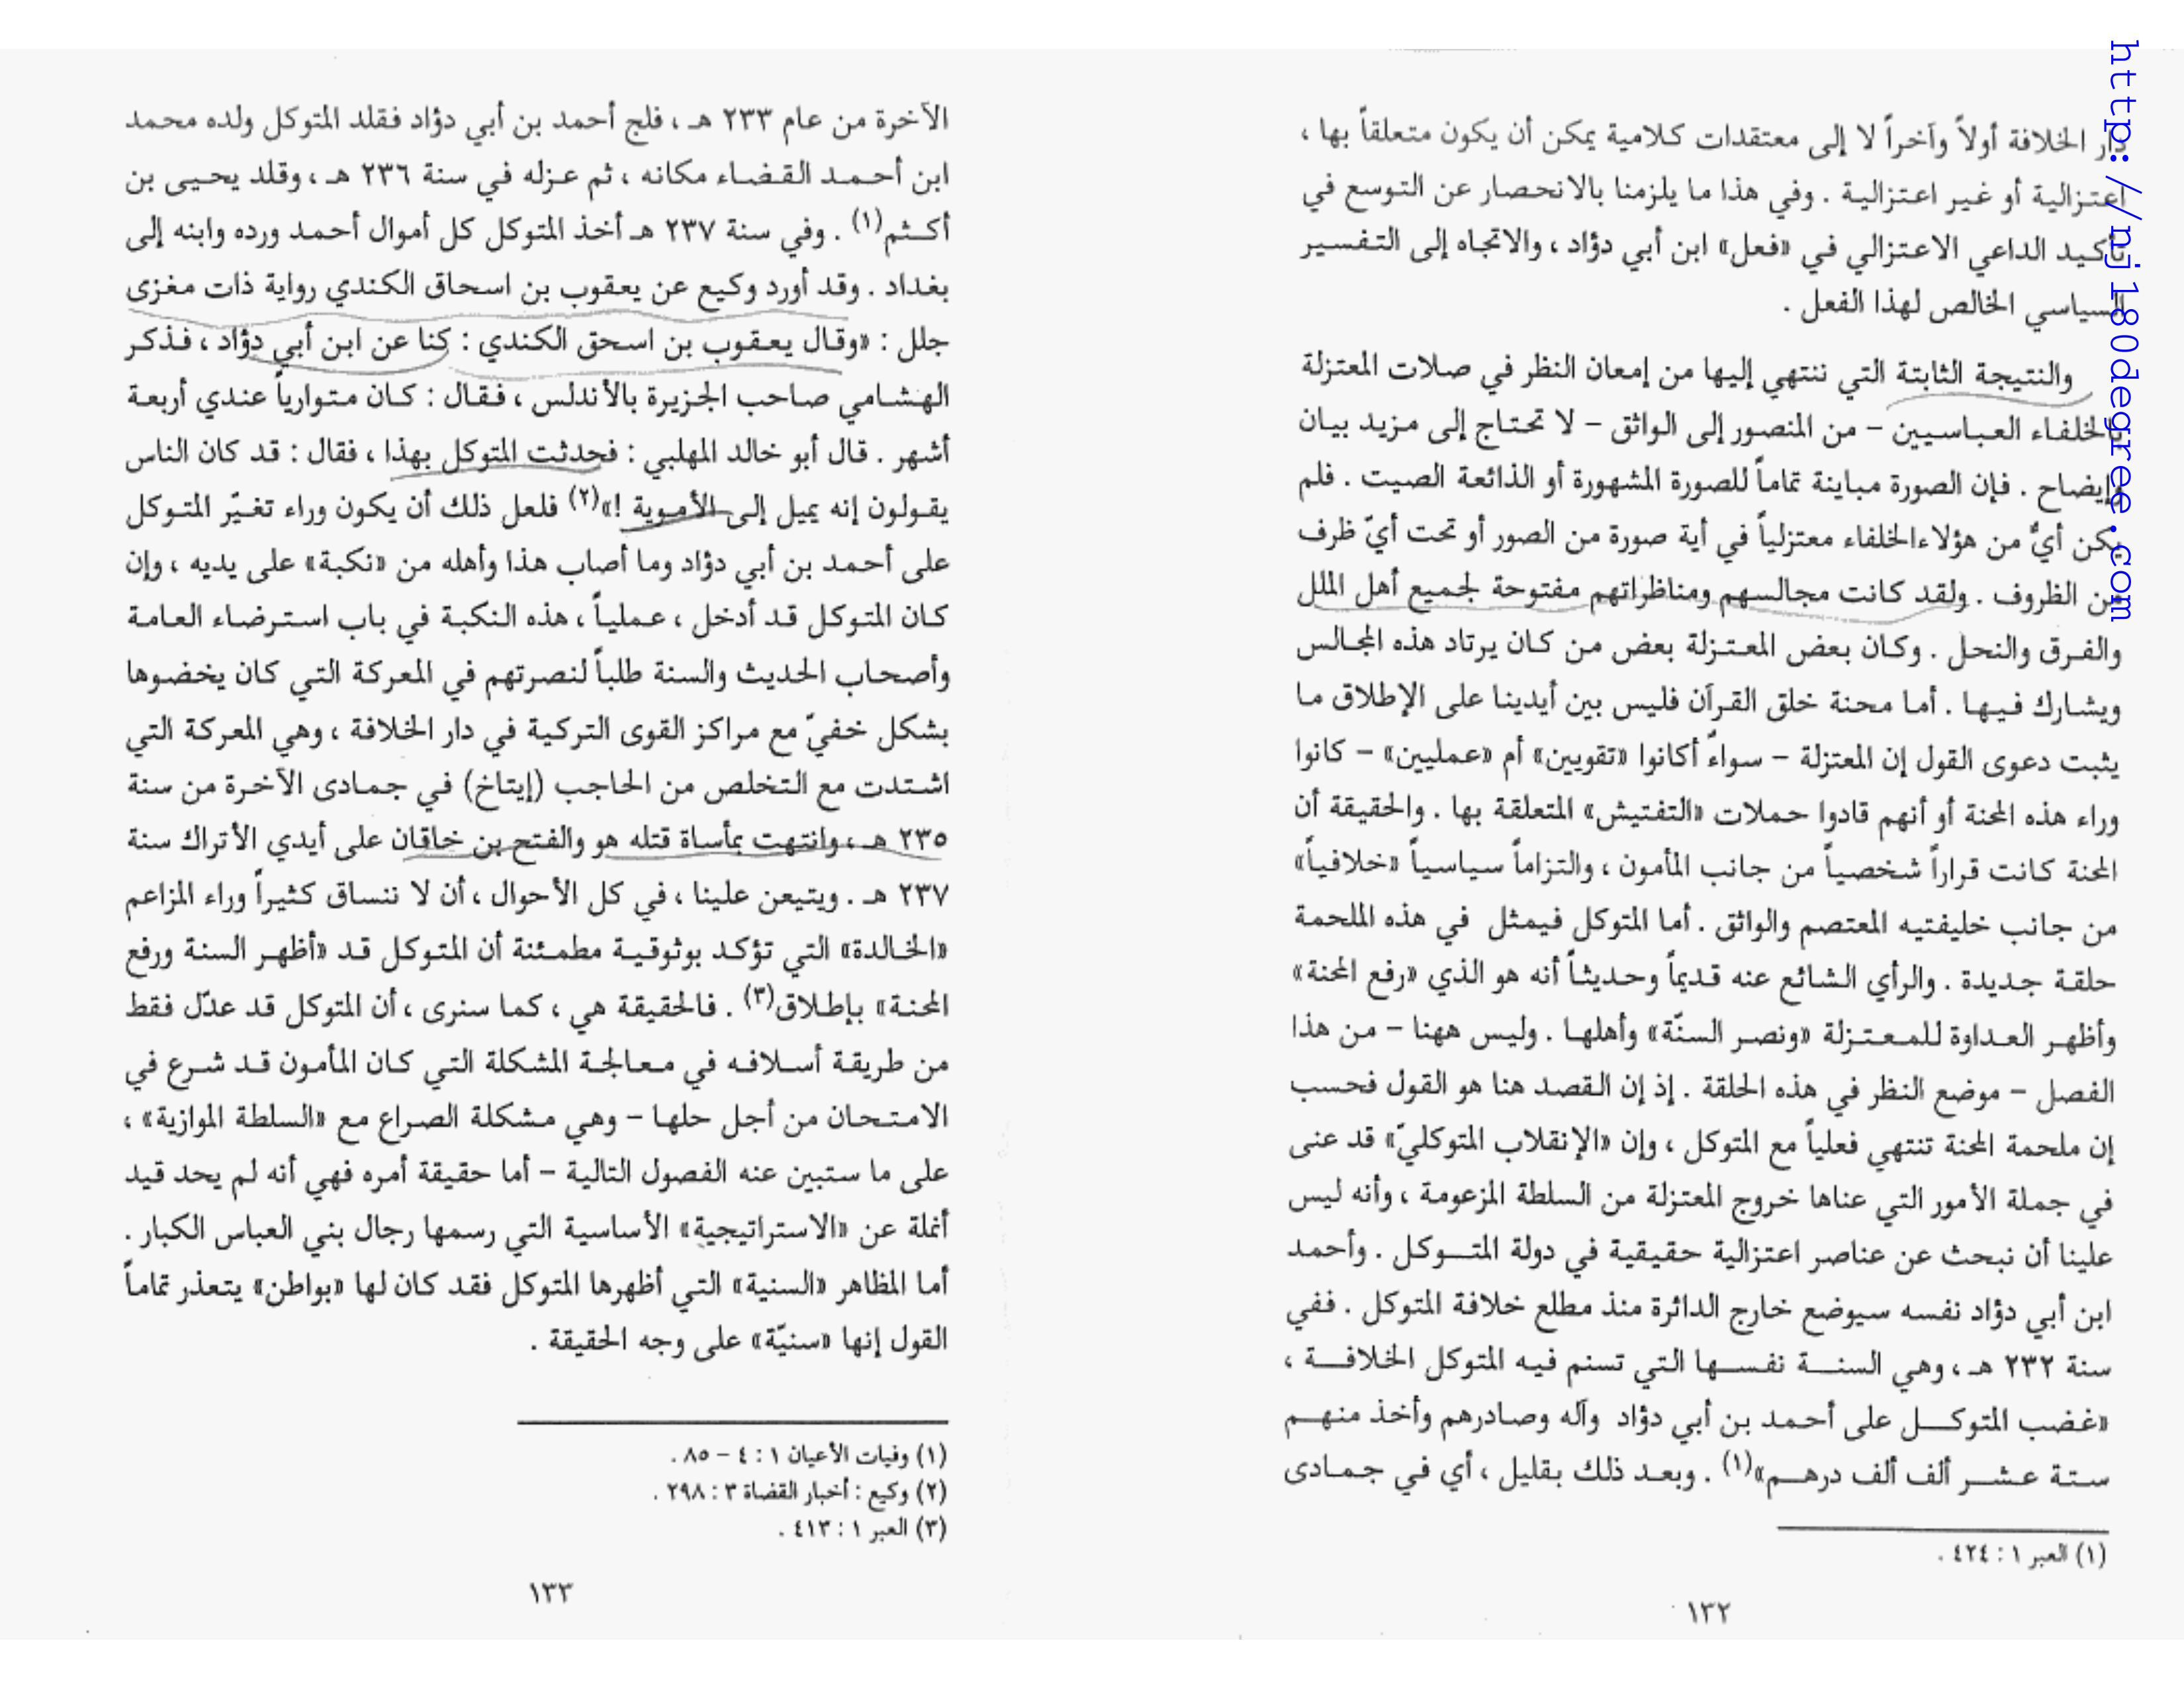 دار الخلافة أولاً وآخراً لا إلى معتقدات كلامية يمكن أن يكون متعلقاً بها ،
اعتزالية أو غير اعتزالية . وفي هذا ما يلزمنا بالانحصار عن التوسع في
تأكيد الداعي الاعتزالي في «فعل» ابن أبي دؤاد ، والاتجاه إلى التفسير
السياسي الخالص لهذا الفعل .
والنتيجة الثابتة التي ننتهي إليها من إمعان النظر في صلات المعتزلة
بالخلفاء العباسيين – من المنصور إلى الواثق – لا تحتاج إلى مزيد بيان
وإيضاح . فإن الصورة مباينة تماماً للصورة المشهورة أو الذائعة الصيت . فلم
يكن أيٌّ من هؤلاءالخلفاء معتزلياً في أية صورة من الصور أو تحت أيّ ظرف
من الظروف . ولقد كانت مجالسهم ومناظراتهم مفتوحة لجميع أهل الملل
والفرق والنحل . وكان بعض المعتزلة بعض من كان يرتاد هذه المجالس
ويشارك فيها . أما محنة خلق القرآن فليس بين أيدينا على الإطلاق ما
يثبت دعوى القول إن المعتزلة – سواءً أكانوا «تقويين» أم «عمليين» – كانوا
وراء هذه المحنة أو أنهم قادوا حملات «التفتيش» المتعلقة بها . والحقيقة أن
المحنة كانت قراراً شخصياً من جانب المأمون ، والتزاماً سياسياً «خلافياً»
من جانب خليفتيه المعتصم والواثق . أما المتوكل فيمثل في هذه الملحمة
حلقة جديدة . والرأي الشائع عنه قديماً وحديثاً أنه هو الذي «رفع المحنة»
وأظهر العداوة للمعتزلة «ونصر السنّة» وأهلها . وليس ههنا – من هذا
الفصل – موضع النظر في هذه الحلقة . إذ إن القصد هنا هو القول فحسب
إن ملحمة المحنة تنتهي فعلياً مع المتوكل ، وإن «الإنقلاب المتوكليّ» قد عنى
في جملة الأمور التي عناها خروج المعتزلة من السلطة المزعومة ، وأنه ليس
علينا أن نبحث عن عناصر اعتزالية حقيقية في دولة المتوكل . وأحمد
ابن أبي دؤاد نفسه سيوضع خارج الدائرة منذ مطلع خلافة المتوكل . ففي
سنة ٢٣٢ هـ ، وهي السنة نفسها التي تسنم فيه المتوكل الخلافة ،
«غضب المتوكل على أحمد بن أبي دؤاد وآله وصادرهم وأخذ منهم
ستة عشر ألف ألف درهم»(١) . وبعد ذلك بقليل ، أي في جمادى
(١) العبر ١ : ٤٢٤ .
١٣٢
الآخرة من عام ٢٣٣ هـ ، فلج أحمد بن أبي دؤاد فقلد المتوكل ولده محمد
ابن أحمد القضاء مكانه ، ثم عزله في سنة ٢٣٦ هـ ، وقلد يحيى بن
أكثم(١) . وفي سنة ٢٣٧ هـ أخذ المتوكل كل أموال أحمد ورده وابنه إلى
بغداد . وقد أورد وكيع عن يعقوب بن اسحاق الكندي رواية ذات مغزى
جلل : «وقال يعقوب بن اسحق الكندي : كنا عن ابن أبي دؤاد ، فذكر
الهشامي صاحب الجزيرة بالأندلس ، فقال : كان متوارياً عندي أربعة
أشهر . قال أبو خالد المهلبي : فحدثت المتوكل بهذا ، فقال : قد كان الناس
يقولون إنه يميل إلى الأموية !»(٢) فلعل ذلك أن يكون وراء تغيّر المتوكل
على أحمد بن أبي دؤاد وما أصاب هذا وأهله من «نكبة» على يديه ، وإن
كان المتوكل قد أدخل ، عملياً ، هذه النكبة في باب استرضاء العامة
وأصحاب الحديث والسنة طلباً لنصرتهم في المعركة التي كان يخضوها
بشكل خفيّ مع مراكز القوى التركية في دار الخلافة ، وهي المعركة التي
اشتدت مع التخلص من الحاجب (إيتاخ) في جمادى الآخرة من سنة
٢٣٥ هـ ، وانتهت بمأساة قتله هو والفتح بن خاقان على أيدي الأتراك سنة
٢٣٧ هـ . ويتيعن علينا ، في كل الأحوال ، أن لا ننساق كثيراً وراء المزاعم
«الخالدة» التي تؤكد بوثوقية مطمئنة أن المتوكل قد «أظهر السنة ورفع
المحنة» بإطلاق(٣) . فالحقيقة هي ، كما سنرى ، أن المتوكل قد عدّل فقط
من طريقة أسلافه في معالجة المشكلة التي كان المأمون قد شرع في
الامتحان من أجل حلها – وهي مشكلة الصراع مع «السلطة الموازية» ،
على ما ستبين عنه الفصول التالية – أما حقيقة أمره فهي أنه لم يحد قيد
أنملة عن «الاستراتيجية» الأساسية التي رسمها رجال بني العباس الكبار .
أما المظاهر «السنية» التي أظهرها المتوكل فقد كان لها «بواطن» يتعذر تماماً
القول إنها «سنيّة» على وجه الحقيقة .
(١) وفيات الأعيان ١ : ٤ – ٨٥ .
(٢) وكيع : أخبار القضاة ٣ : ٢٩٨ .
(٣) العبر ١ : ٤١٣ .
١٣٣
http://nj180degree.com